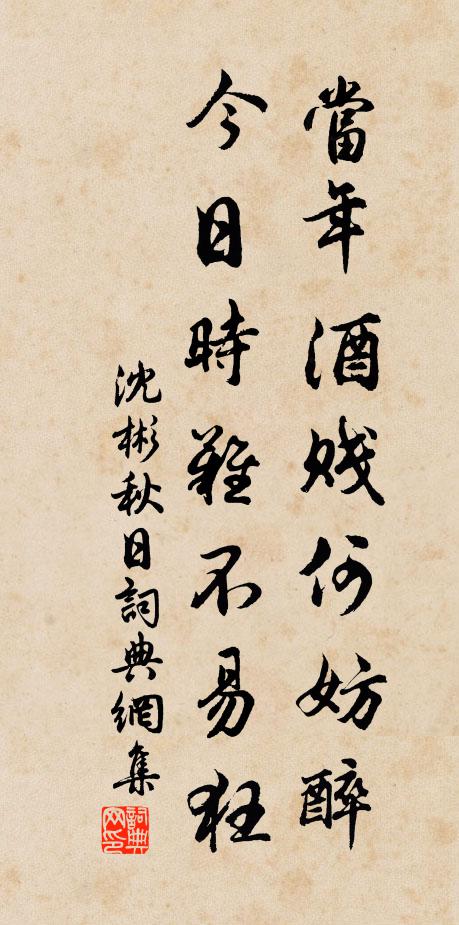 當年酒賤何妨醉
今日時難不易狂
沈彬秋日詞典網集
詞典
网印